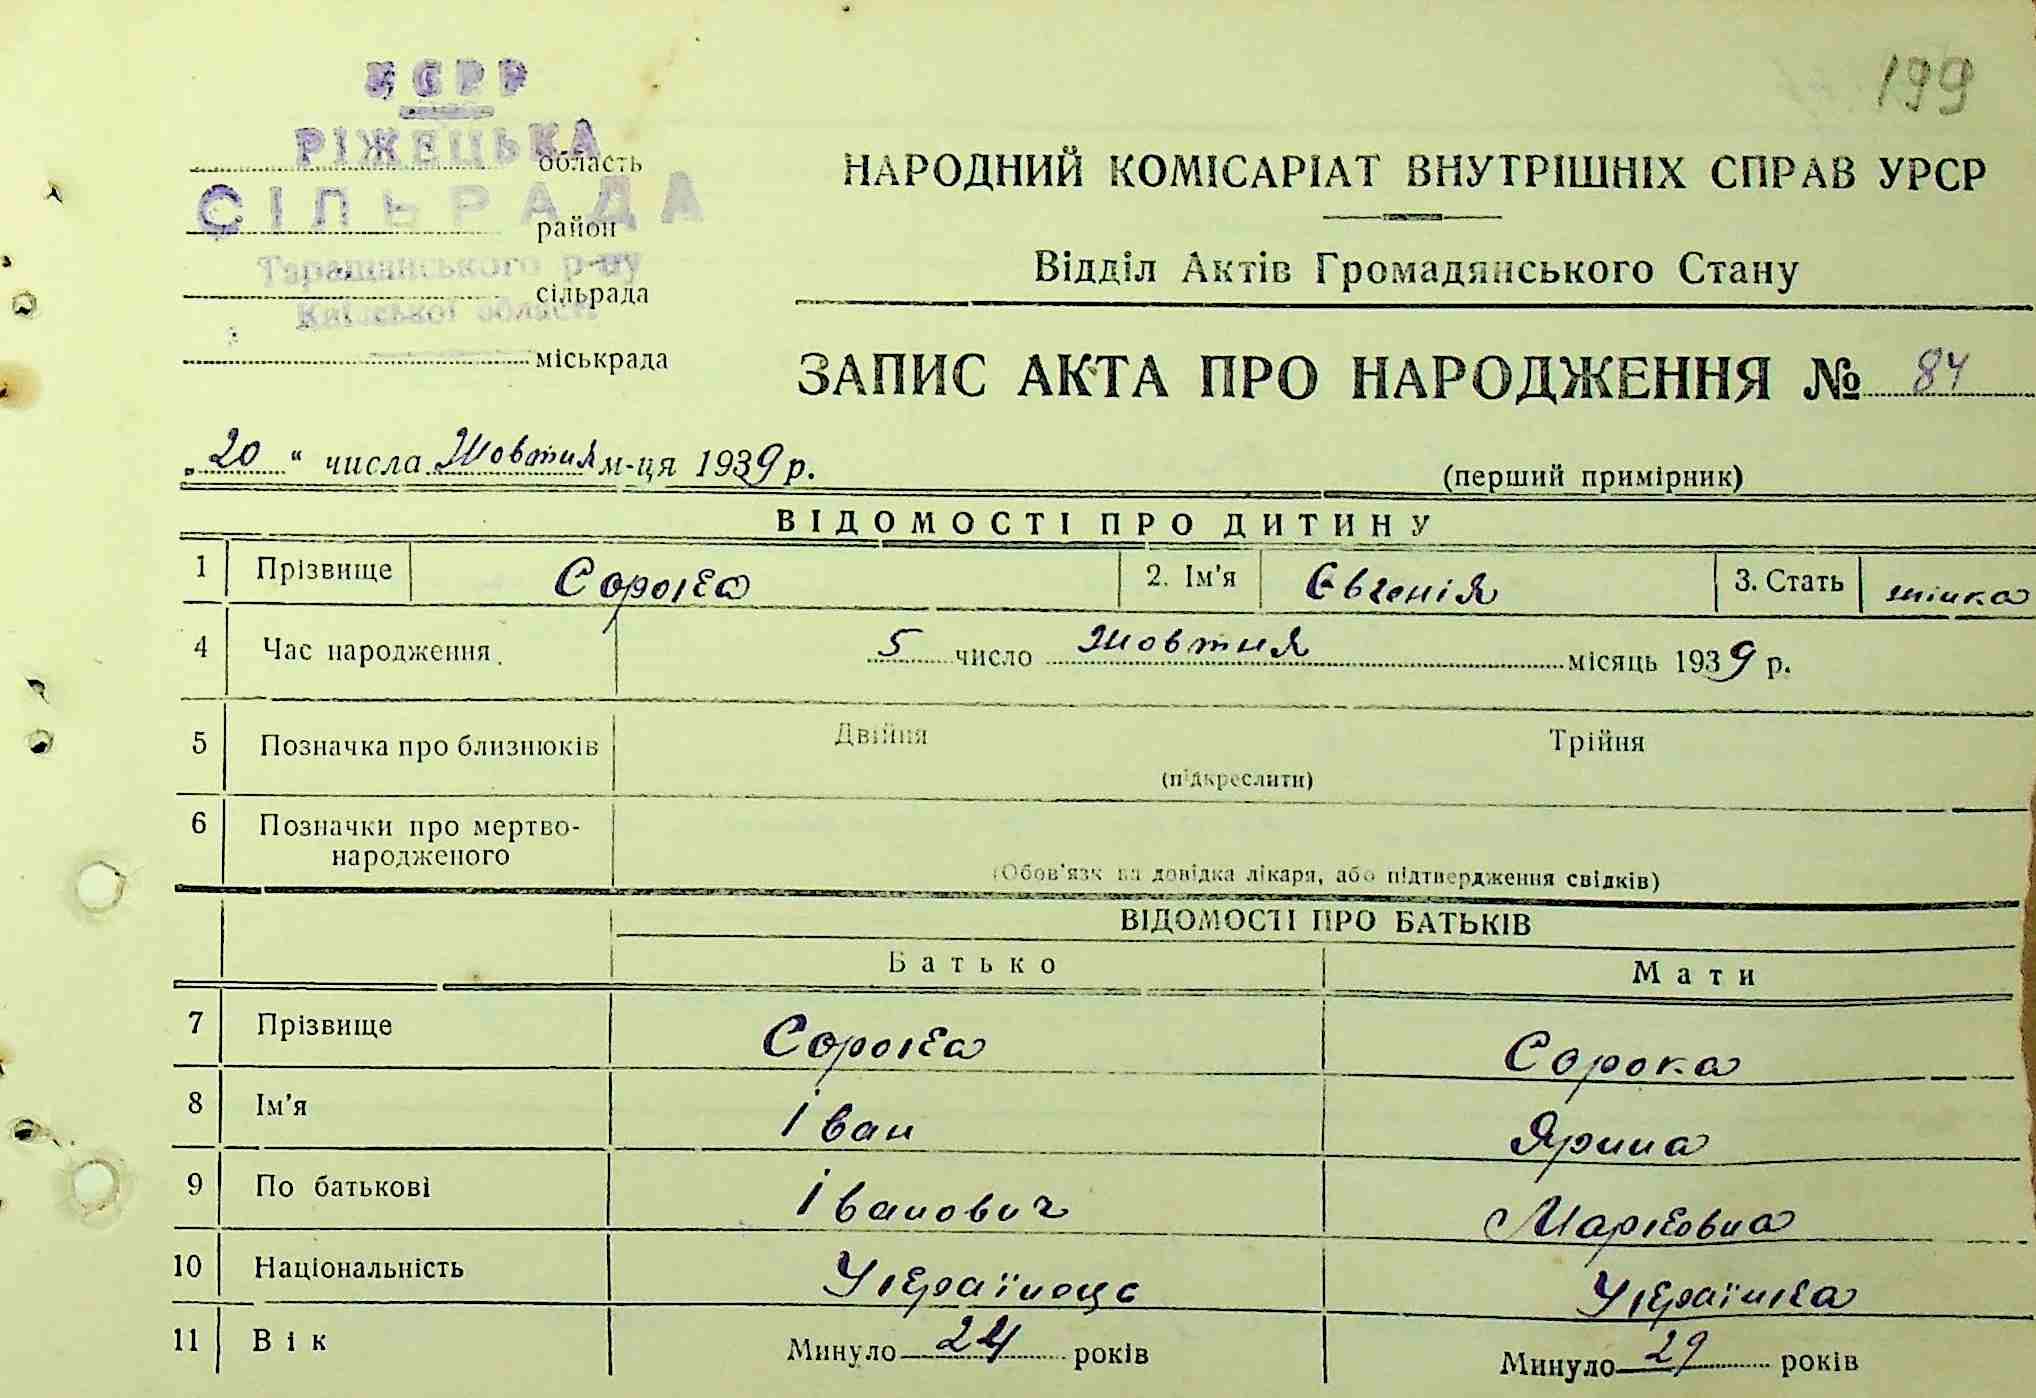 199
УСРР
РІЖЕЦЬКА
область
СІЛЬРАДА
район
Таращанського р-ну
сільрада
Київської області
міськрада
НАРОДНИЙ КОМІСАРІАТ ВНУТРІШНІХ СПРАВ УРСР
Відділ Актів Громадянського Стану
ЗАПИС АКТА ПРО НАРОДЖЕННЯ № 84
„20“ числа Жовтня м-ця 1939 р.
(перший примірник)
ВІДОМОСТІ ПРО ДИТИНУ
1 Прізвище Сорока 2. Ім'я Євгенія 3. Стать жінка
4 Час народження. 5 число Жовтня місяць 1939 р.
5 Позначка про близнюків Двійня Трійня
(підкреслити)
6 Позначки про мертво-
народженого
(Обов'язкова довідка лікаря, або підтвердження свідків)
ВІДОМОСТІ ПРО БАТЬКІВ
Батько Мати
7 Прізвище Сорока Сорока
8 Ім'я Іван Ярина
9 По батькові Іванович Марковна
10 Національність Українець Українка
11 Вік Минуло 24 років Минуло 29 років